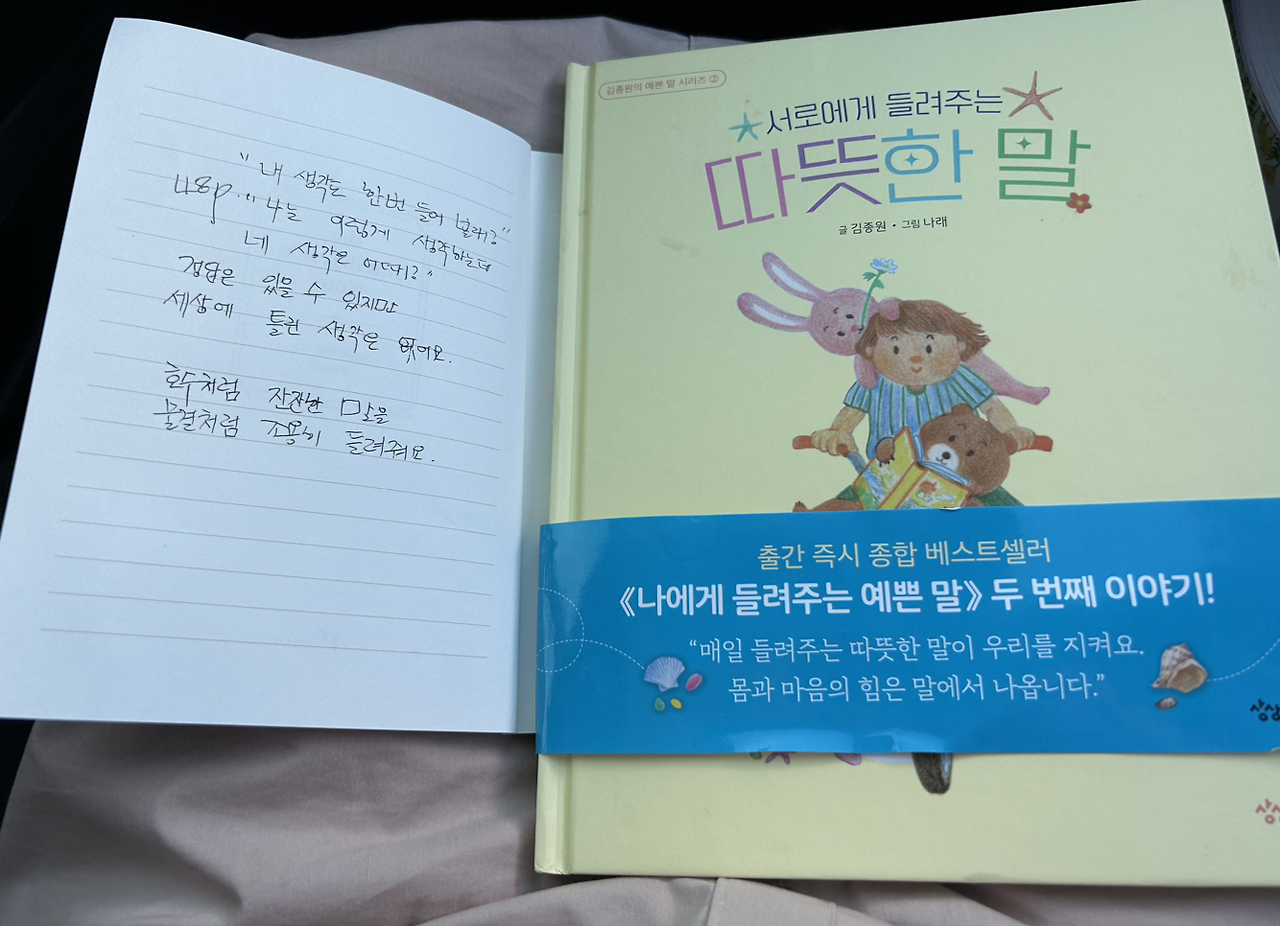 "내 생각도 한번 들어 볼래?"
48p. "나는 이렇게 생각하는데
네 생각은 어때?"
정답은 있을 수 있지만
세상에 틀린 생각은 없어요.
호수처럼 잔잔한 말을
물결처럼 조용히 들려줘요.
김종원의 예쁜 말 시리즈 ②
서로에게 들려주는
따뜻한 말
글 김종원 · 그림 나래
출간 즉시 종합 베스트셀러
《나에게 들려주는 예쁜 말》 두 번째 이야기!
"매일 들려주는 따뜻한 말이 우리를 지켜요.
몸과 마음의 힘은 말에서 나옵니다."
상상